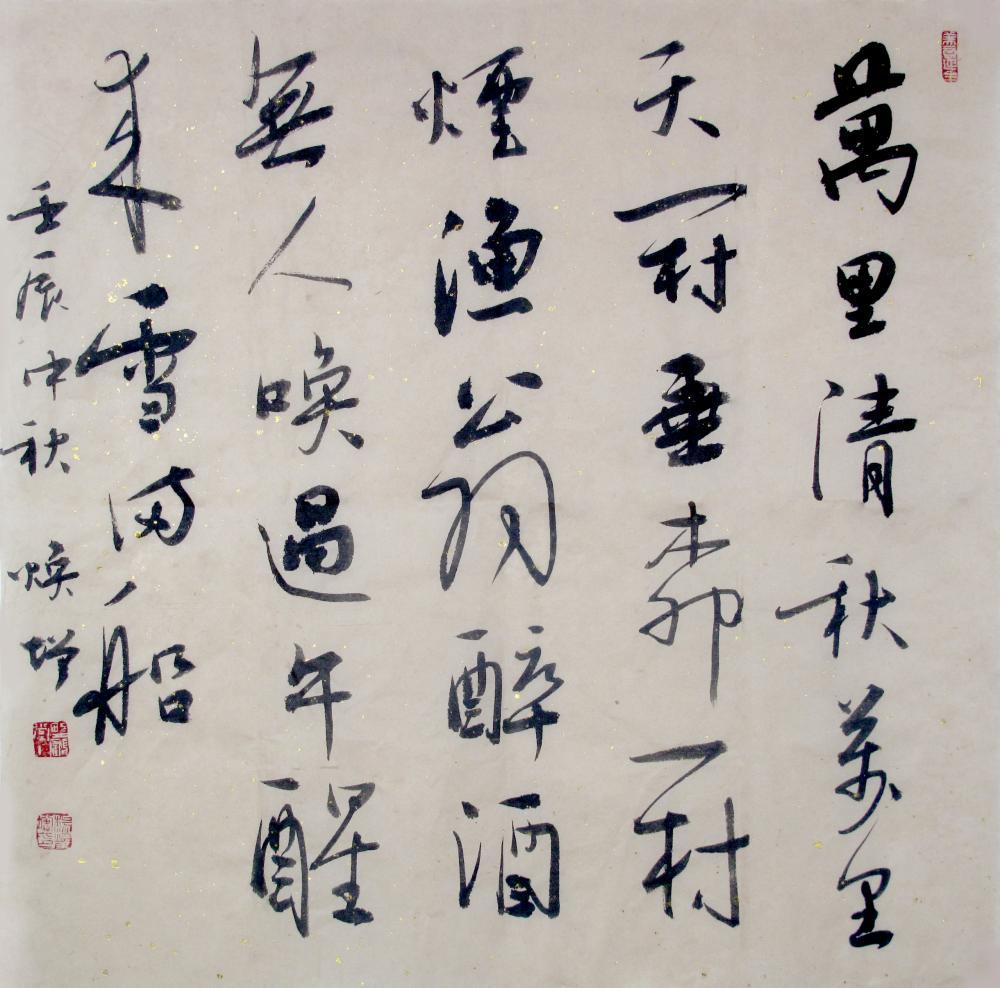 萬里清秋萬里
天一村垂柳一村
煙漁翁醉酒
無人喚過午醒
來雪滿船
壬辰中秋煥增